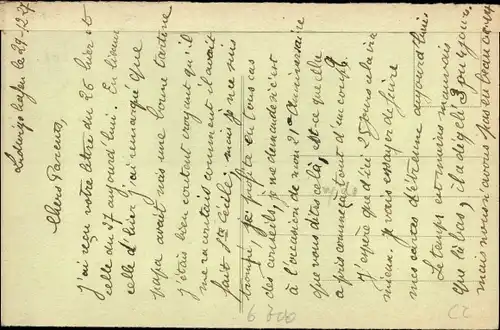 Ludwigshafen le 29-12-27
Chers Parents,
j'ai reçu votre lettre du 26 hier et
celle du 27 aujourd'hui. En lisant
celle d'hier j'ai remarqué que
papa avait mis une bonne tartine
j'étais bien content croyant qu'il
me racontais comment il avait
fait Ste Cécile, mais je me suis
trompé, je profite en tous cas
des conseils, je ne demande n'est
à l'occasion de mon 21e Anniversaire
que vous dites celà, est-ce que ella
a pris commença tout d'un coup?
J'espère que d'ici 25 jours cela ira
mieux. je vais essayer de faire
mes cartes d'étrenne aujourd'hui
Le temps est moins mauvais
que là bas, il a dégelé 3 ou 4 jours
mais nous n'avons pas eu beaucoup